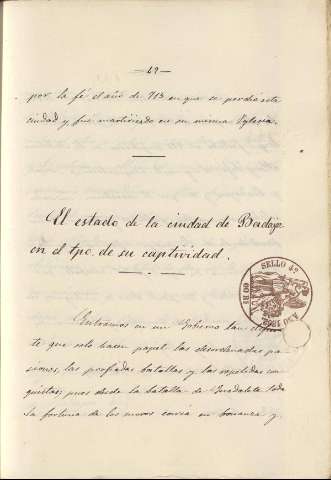 — 49 —
por la fé el año de 713 en que se perdió esta
ciudad y fué martirizado en su misma Yglesia.
El estado de la ciudad de Badajoz
en el tpo. de su captividad.
Entramos en un Gobierno tan
te que solo hacen papel las desordenadas pa-
siones, las porfiadas batallas y las repetidas con-
quistas; pues desde la batalla de Guadalete toda
la fortuna de los moros corria en bonanza y
SELLO 4º
AÑO 1862